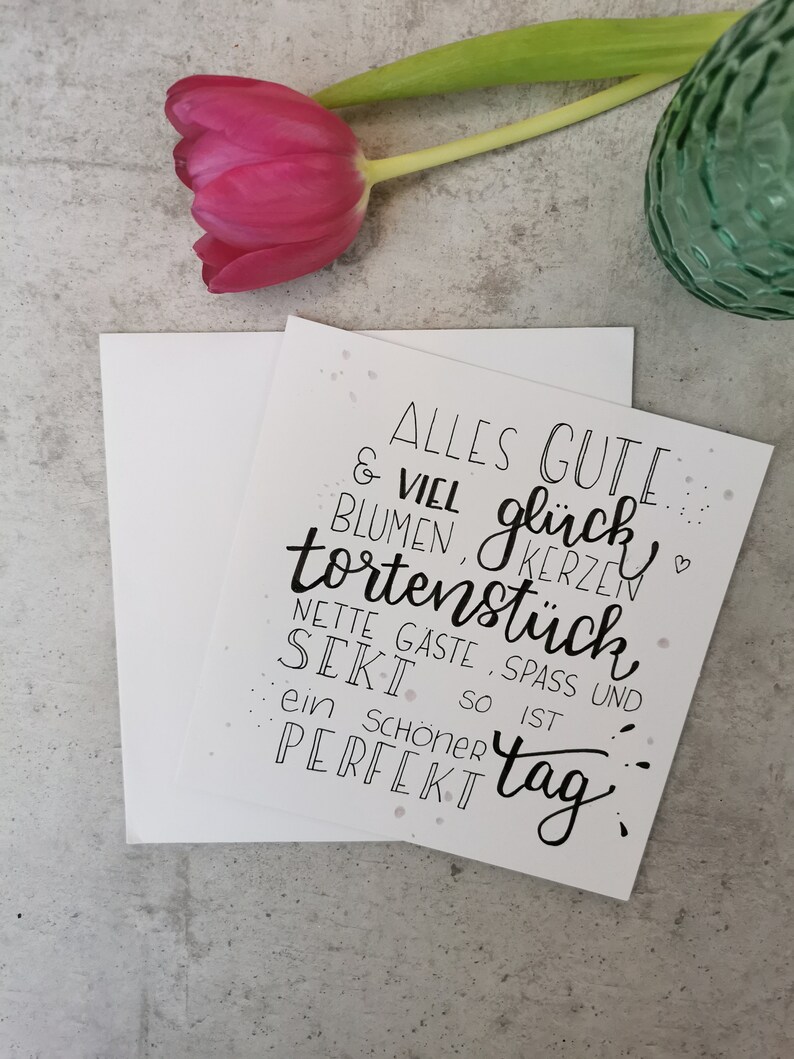 ALLES GUTE...
& VIEL glück
BLUMEN, KERZEN
tortenstück
NETTE GÄSTE, SPASS UND
SEKT SO IST
ein SCHÖNER tag
PERFEKT